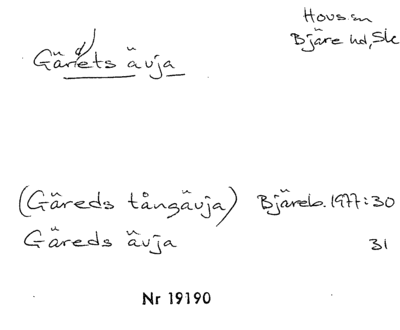 Hovs sn
Bjäre hd, Sk
Gärets ävja
(Gäreds tångävja) Bjäreb. 1977:30
Gäreds ävja 31
Nr 19190